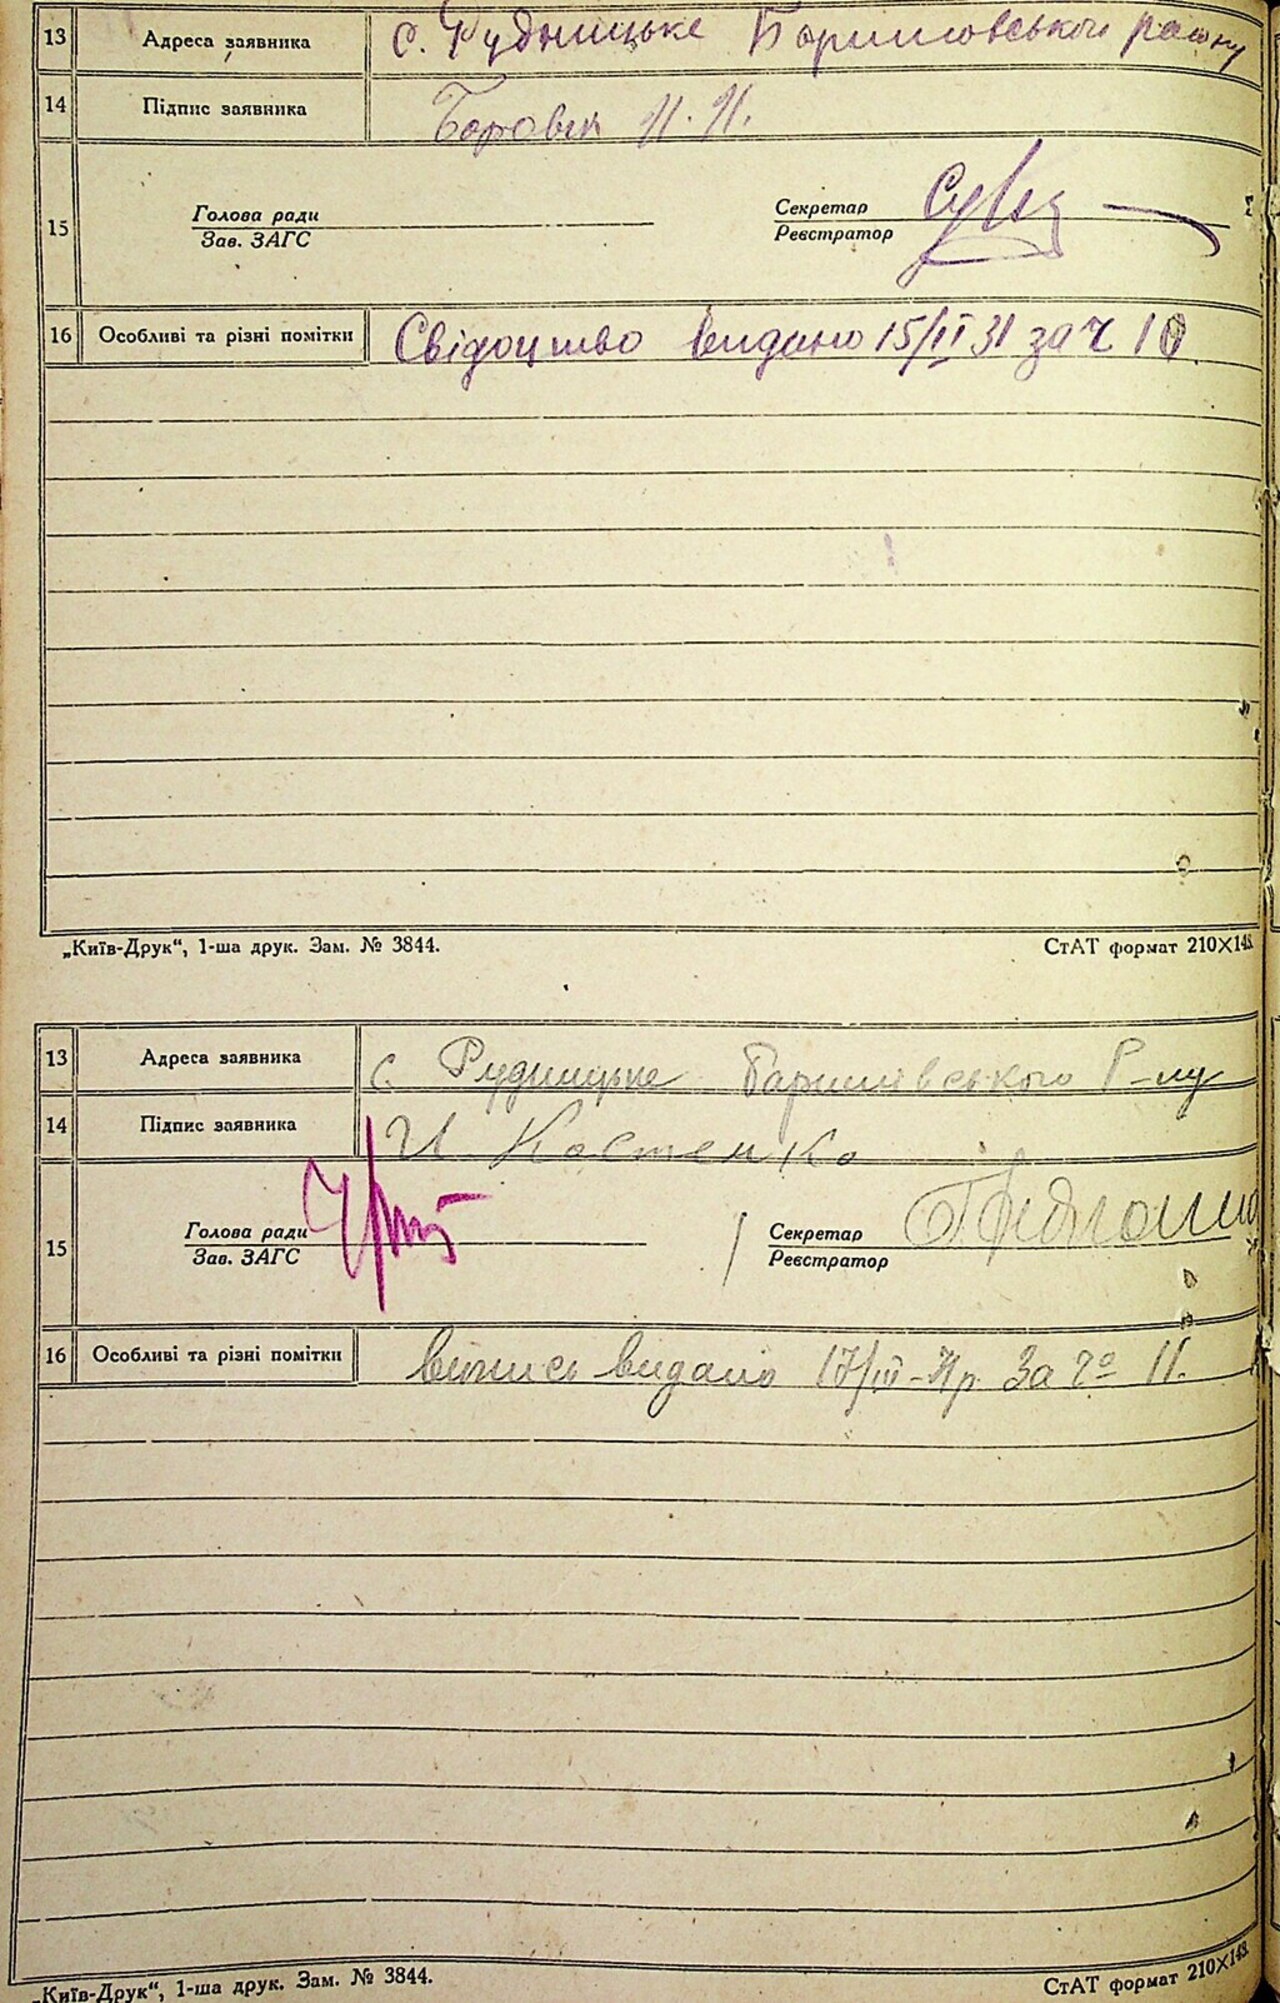 13 Адреса заявника с. Рудницьке Баришовського району
14 Підпис заявника Боровик И. И.
15 Голова ради Секретар
Зав. ЗАГС Реєстратор
16 Особливі та різні помітки Свідоцтво видано 15/II 31 за ч 10
„Київ-Друк“, 1-ша друк. Зам. № 3844. СтАТ формат 210×148.
13 Адреса заявника с Рудницьке Баришівського Р-ну
14 Підпис заявника И. Костенко
15 Голова ради Секретар
Зав. ЗАГС Реєстратор
16 Особливі та різні помітки Випись видано 17/III-31р. За № 11.
„Київ-Друк“, 1-ша друк. Зам. № 3844. СтАТ формат 210×148.